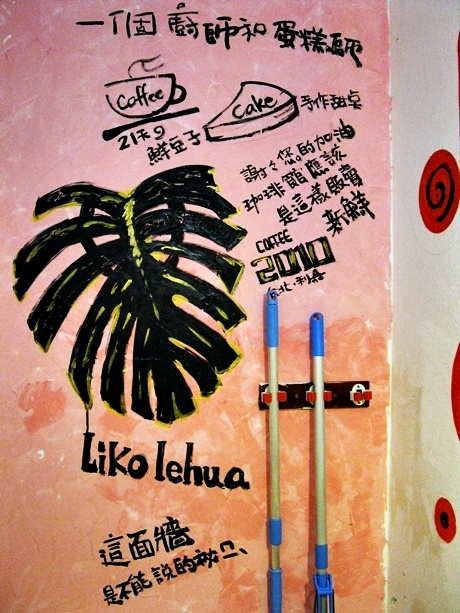 一個廚師和蛋糕師
coffee
cake
手作甜桌
21天的
鮮豆子
謝謝您的加油
珈琲館應該
是這樣販賣
新鮮
COFFEE
2010
台北,利嘉
Liko lehua
這面牆
是不能說的秘